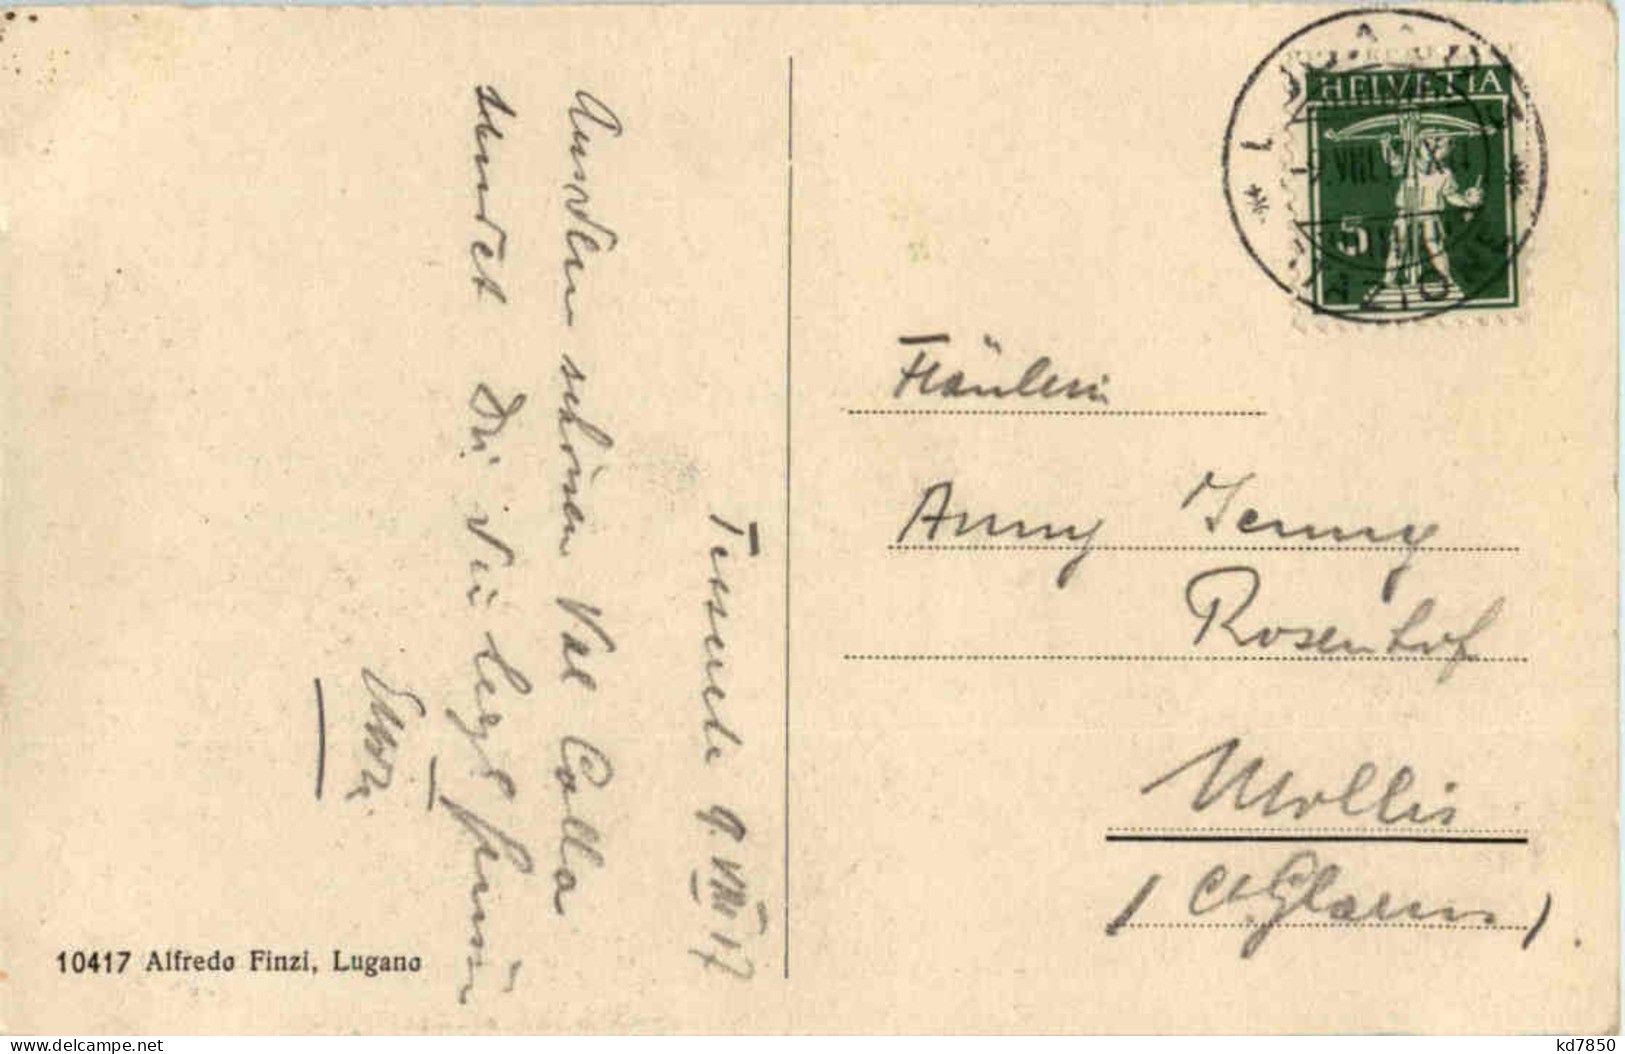 HELVETIA
5
Tesserete 9. VIII 17
Aus dem schönen Val Colla
sendet Dir die
10417 Alfredo Finzi, Lugano
Fräulein
Anny Jenny
Rosenhof
Mollis
(Ct. Glarus)
kd7850